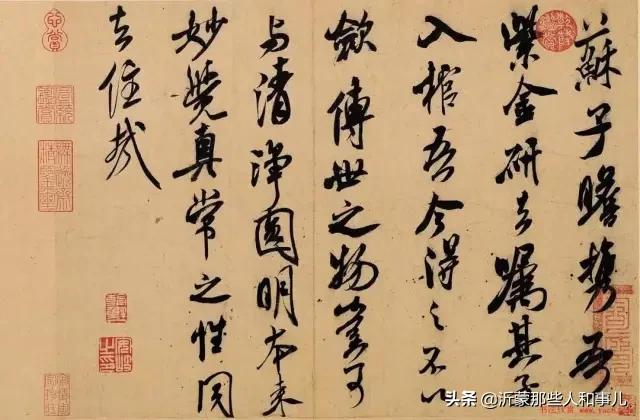 蘇子瞻携吾
紫金研去嘱其子
入棺吾今得之不以
斂傳世之物豈可
与清淨圓明本来
妙覺真常之性同
去住哉
头条 @沂蒙那些人和事儿